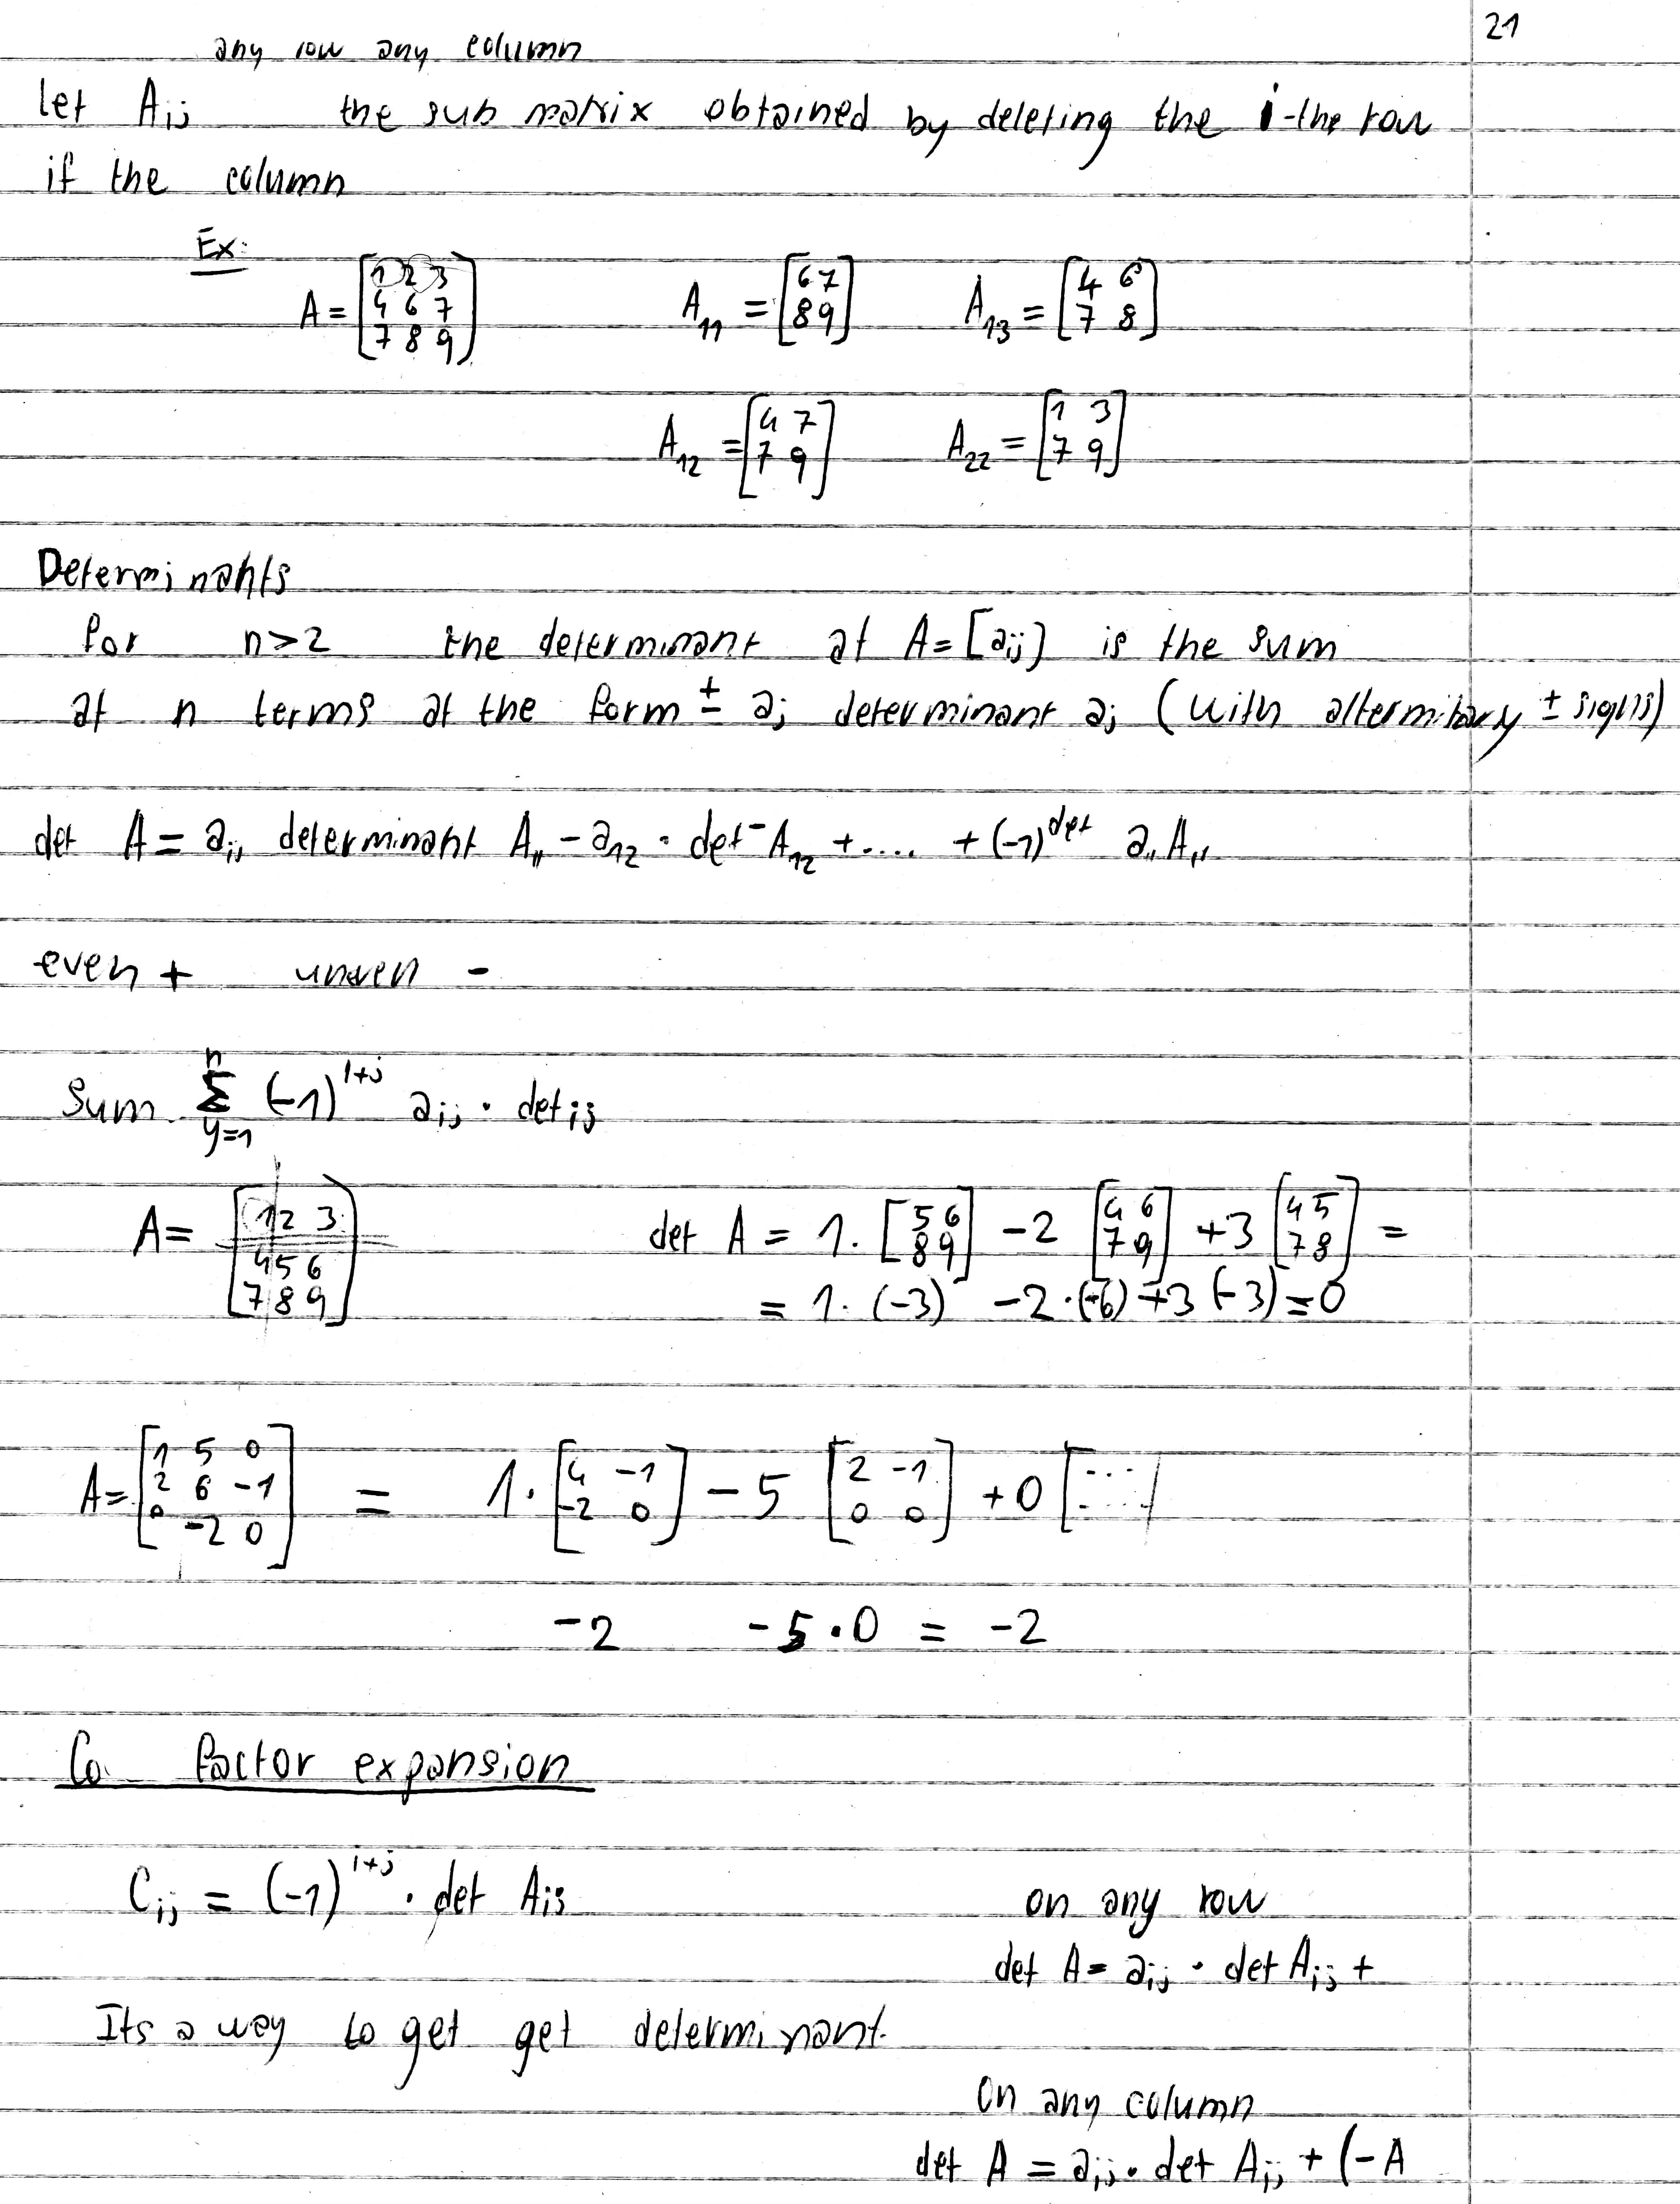 21
any row any column
let Aij the sub matrix obtained by deleting the i-the row
if the column
Ex:
A = [1 2 3; 4 6 7; 7 8 9] A11 = [6 7; 8 9] A13 = [4 6; 7 8]
A12 = [4 7; 7 9] A22 = [1 3; 7 9]
Determinants
for n>2 the determinant at A = [aij] is the sum
at n terms at the form ± aj determinant aj (with altermitary ± signs)
det A = aij determinant A11 - a12 · det A12 + .... + (-1)^det a11 A11
even + uneven -
Sum Σ^n_y=1 (-1)^1+j aij · detij
A = [1 2 3; 4 5 6; 7 8 9] det A = 1. [5 6; 8 9] -2 [4 6; 7 9] +3 [4 5; 7 8] =
= 1. (-3) -2 · (-6) +3 (-3) = 0
A = [1 5 0; 2 6 -1; 0 -2 0] = 1 · [4 -1; -2 0] - 5 [2 -1; 0 0] + 0 [... ; ...]
-2 -5 · 0 = -2
Co factor expansion
Cij = (-1)^1+j · det Aij on any row
det A = aij · det Aij +
Its a way to get get determinant.
on any column
det A = aij · det Aij + (-A